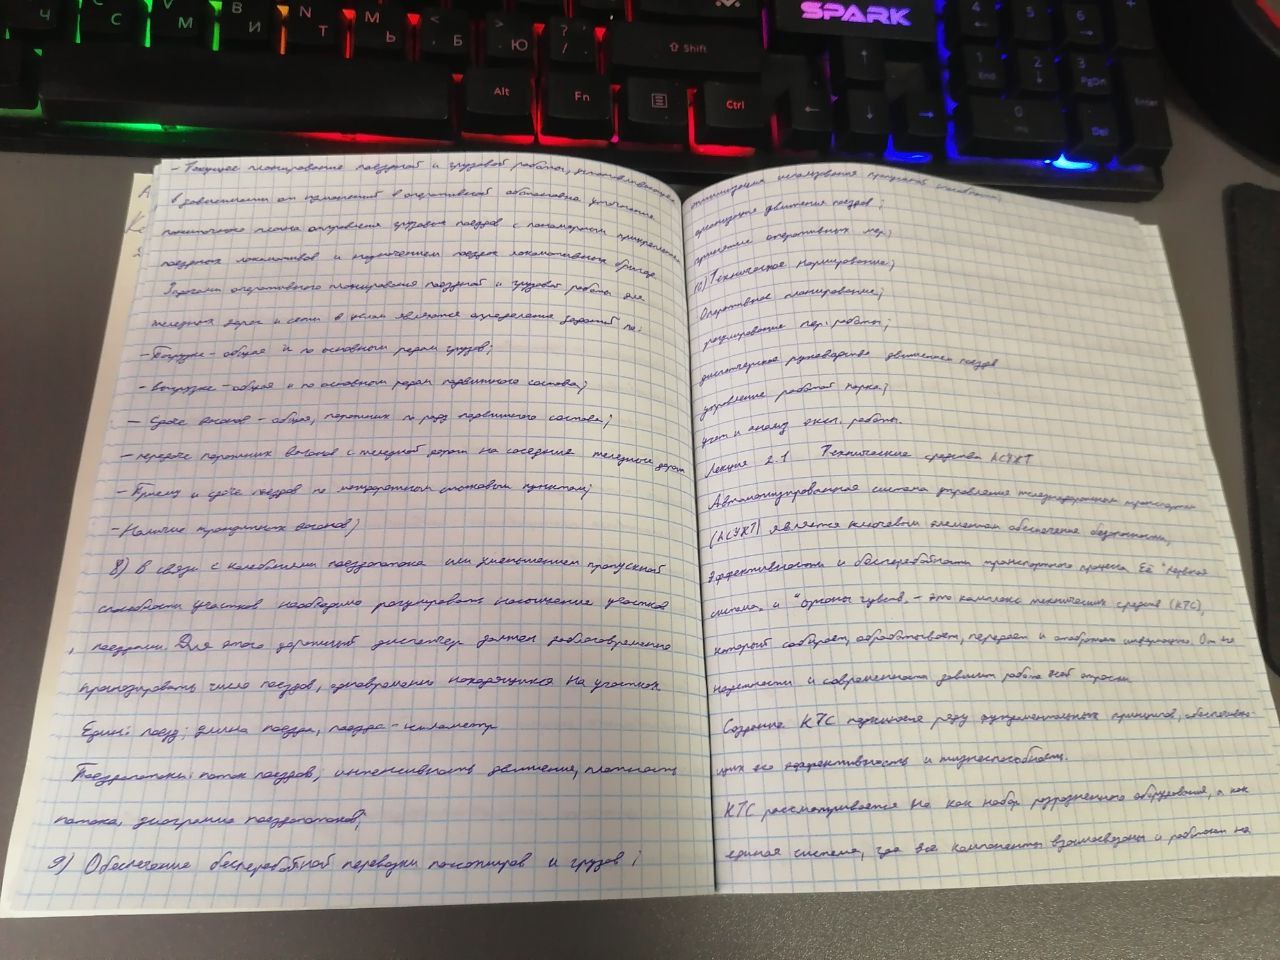 SPARK
Ч С М И Т Ь Б Ю
V B N M
Shift
Alt Fn Ctrl
4 5 6
1 End 2 3 PgDn
0 Del Enter
- Текущее планирование поездной и грузовой работы,
в зависимости от изменений в оперативной обстановке уточнение
плана отправления грузовых поездов с
поездных локомотивов и назначением поездок локомотивных бригад.
Задачами оперативного планирования поездной и грузовой работы для
железных дорог и сети в целом является определение заданий по:
- Погрузке - общая и по основным родам грузов;
- выгрузке - общая и по основным родам подвижного состава;
- Сдаче вагонов - общая, порожних по роду подвижного состава;
- передаче порожних вагонов с железной дороги на соседние железные дороги
- Приему и сдаче поездов по междорожным стыковым пунктам;
- Наличие транзитных вагонов;
8) В связи с колебаниями поездопотока или уменьшением пропускной
способности участков необходимо регулировать насыщение участков
поездами. Для этого дорожный диспетчер должен заблаговременно
прогнозировать число поездов, одновременно находящихся на участках
Един: поезд; длина поезда, поездо-километр
Поездопотоки: поток поездов; интенсивность движения, плотность
потока, диаграмма поездопотоков;
9) Обеспечение бесперебойной перевозки пассажиров и грузов;
оптимизация использования пропускной способности;
организация движения поездов;
принятие оперативных мер;
10) Техническое нормирование;
Оперативное планирование;
регулирование пер. работы;
диспетчерское руководство движением поездов
управление работой парка;
учет и анализ экс. работы.
Лекция 2.1 Технические средства АСУЖТ
Автоматизированная система управления железнодорожным транспортом
(АСУЖТ) является ключевым элементом обеспечения безопасности,
эффективности и бесперебойности транспортного процесса. Её "нервная
система" и "органы чувств" - это комплекс технических средств (КТС),
который собирает, обрабатывает, передает и отображает информацию. От их
надежности и современности зависит работа всей отрасли
Создание КТС подчиняется ряду фундаментальных принципов, обеспечиваю-
щих его эффективность и жизнеспособность.
КТС рассматривается не как набор разрозненного оборудования, а как
единая система, где все компоненты взаимосвязаны и работают на